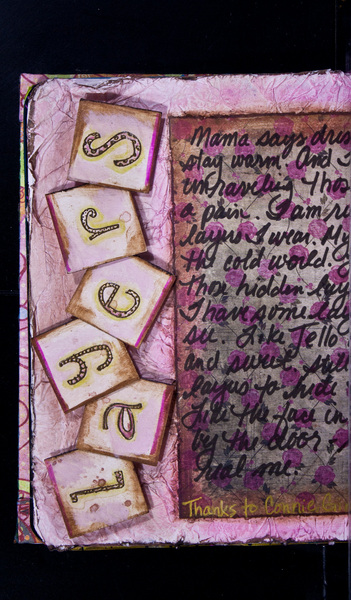 Layers
Mama says dres
stay warm. And I
unraveling thos
a pain. I am
layers I wear. My
the cold world.
hidden
I have some
see. Like Jello
and sweet
layers to hide
like the face in
by the door
heal me.
Thanks to